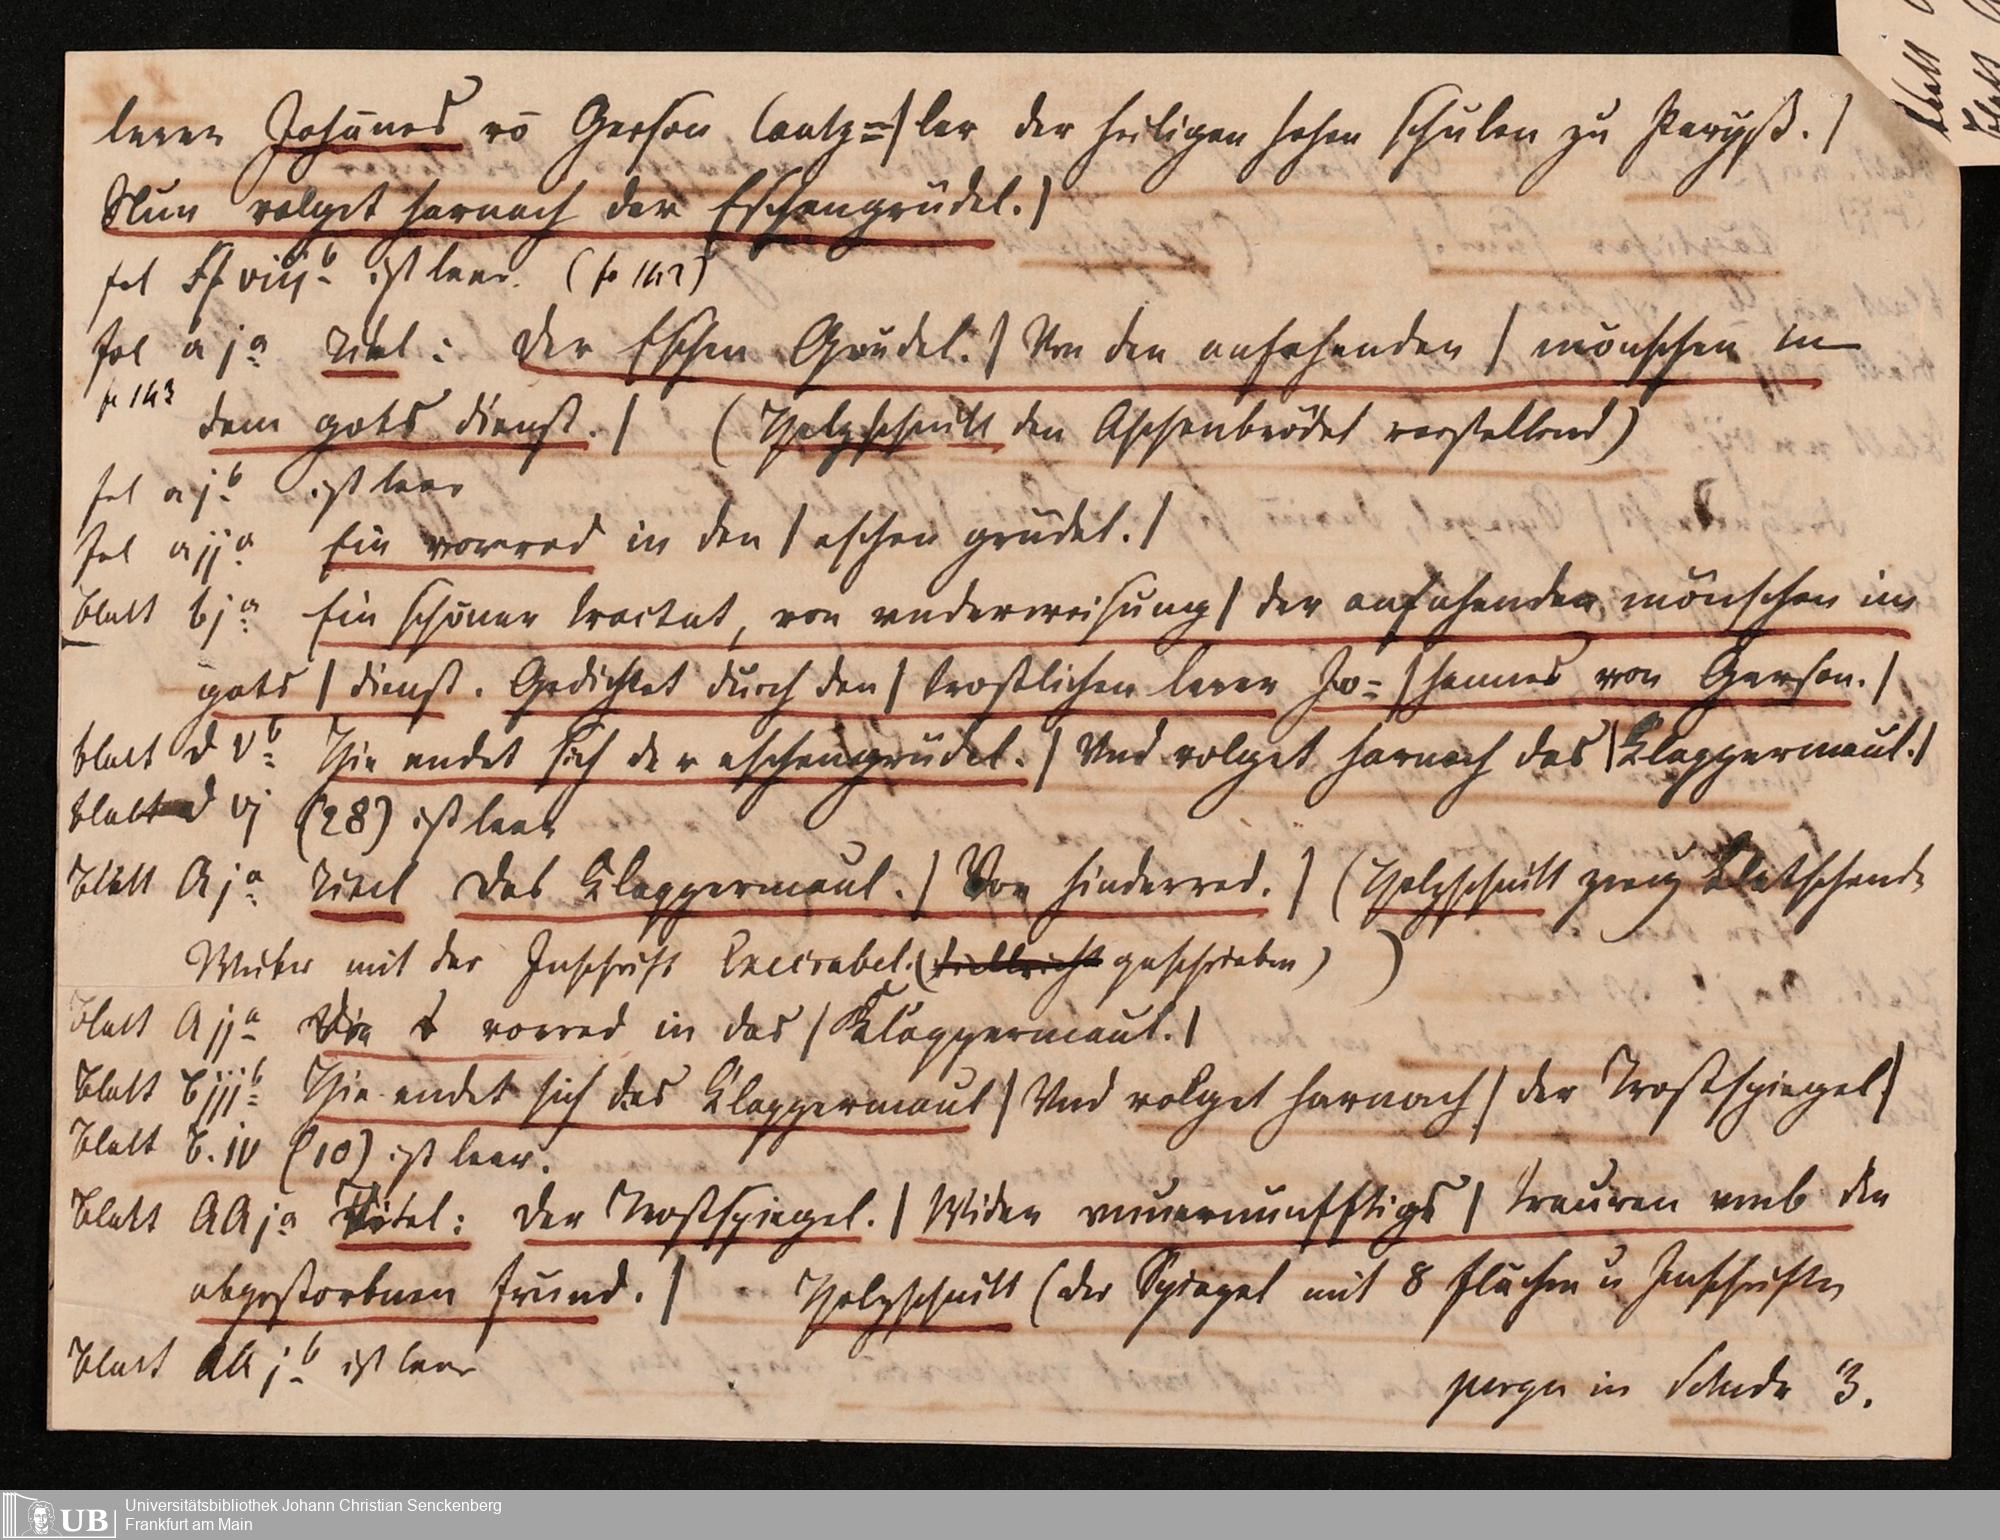 lerer Johānes vō Gerson Cantz=|ler der heiligen hohen schulen zu Paryß.|
Nun volget harnach der Eschengrüdel.|
fol Ff viij b ist leer. (fo 142)
fol a j a Titel: Der Eschen Grüdel.| Von den anfahenden | mönschen in
fo 143
dem gots dienst.| (Holzschnitt den Aschenbrödel vorstellend)
fol a j b ist leer
fol a jj a Ein vorred in den | eschen grüdel.|
Blatt b j a Ein schöner tractat, von underweisung | der anfahenden mönschen in
gots | dienst. Gedichtet durch den | trostlichen lerer Jo=|hannes von Gerson.|
blatt d v b Hie endet sich der eschengrüdel.| Und volget harnach das | Klappermaul.|
blatt d vj (28) ist leer
Blatt A j a Titel Das Klappermaul.| Von hinderred.| (Holzschnitt zwey klatschende
Weiber mit der Inschrift (geschrieben) )
Blatt A jj a Die vorred in das | Klappermaul.|
Blatt B jjj b Hie endet sich das Klappermaul | Und volget harnach | der Trostspiegel |
Blatt B. iv (10) ist leer.
Blatt AA j a Titel: Der Trostspiegel.| Wider unuernunfftigs | trauren vmb die
abgestorbnen fründ.| Holzschnitt (der Spiegel mit 8 flächen u Inschriften
Blatt AA j b ist leer
perge in Scheda 3.
Universitätsbibliothek Johann Christian Senckenberg
Frankfurt am Main
UB